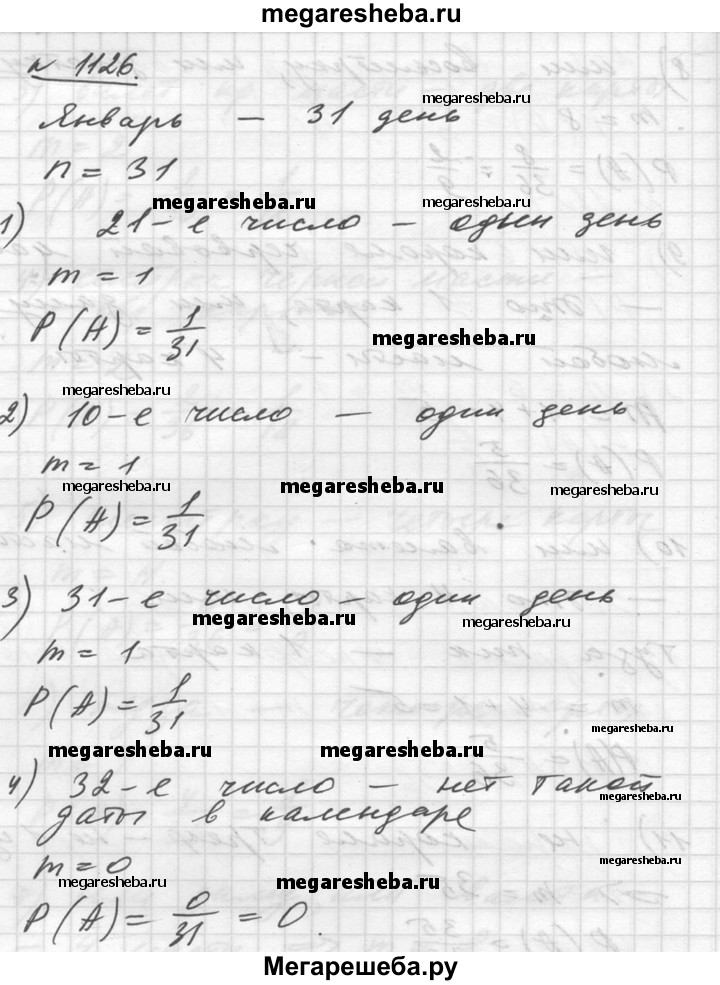 megaresheba.ru
№ 1126.
megaresheba.ru
Январь — 31 день
n = 31
megaresheba.ru
1) 21-е число — один день
m = 1
P(A) = 1/31
megaresheba.ru
megaresheba.ru
2) 10-е число — один день
m = 1
megaresheba.ru megaresheba.ru megaresheba.ru
P(A) = 1/31
3) 31-е число — один день
megaresheba.ru megaresheba.ru
m = 1
P(A) = 1/31
megaresheba.ru
megaresheba.ru megaresheba.ru
4) 32-е число — нет такой
megaresheba.ru
даты в календаре
m = 0
megaresheba.ru
megaresheba.ru megaresheba.ru
P(A) = 0/31 = 0.
Мегарешеба.ру